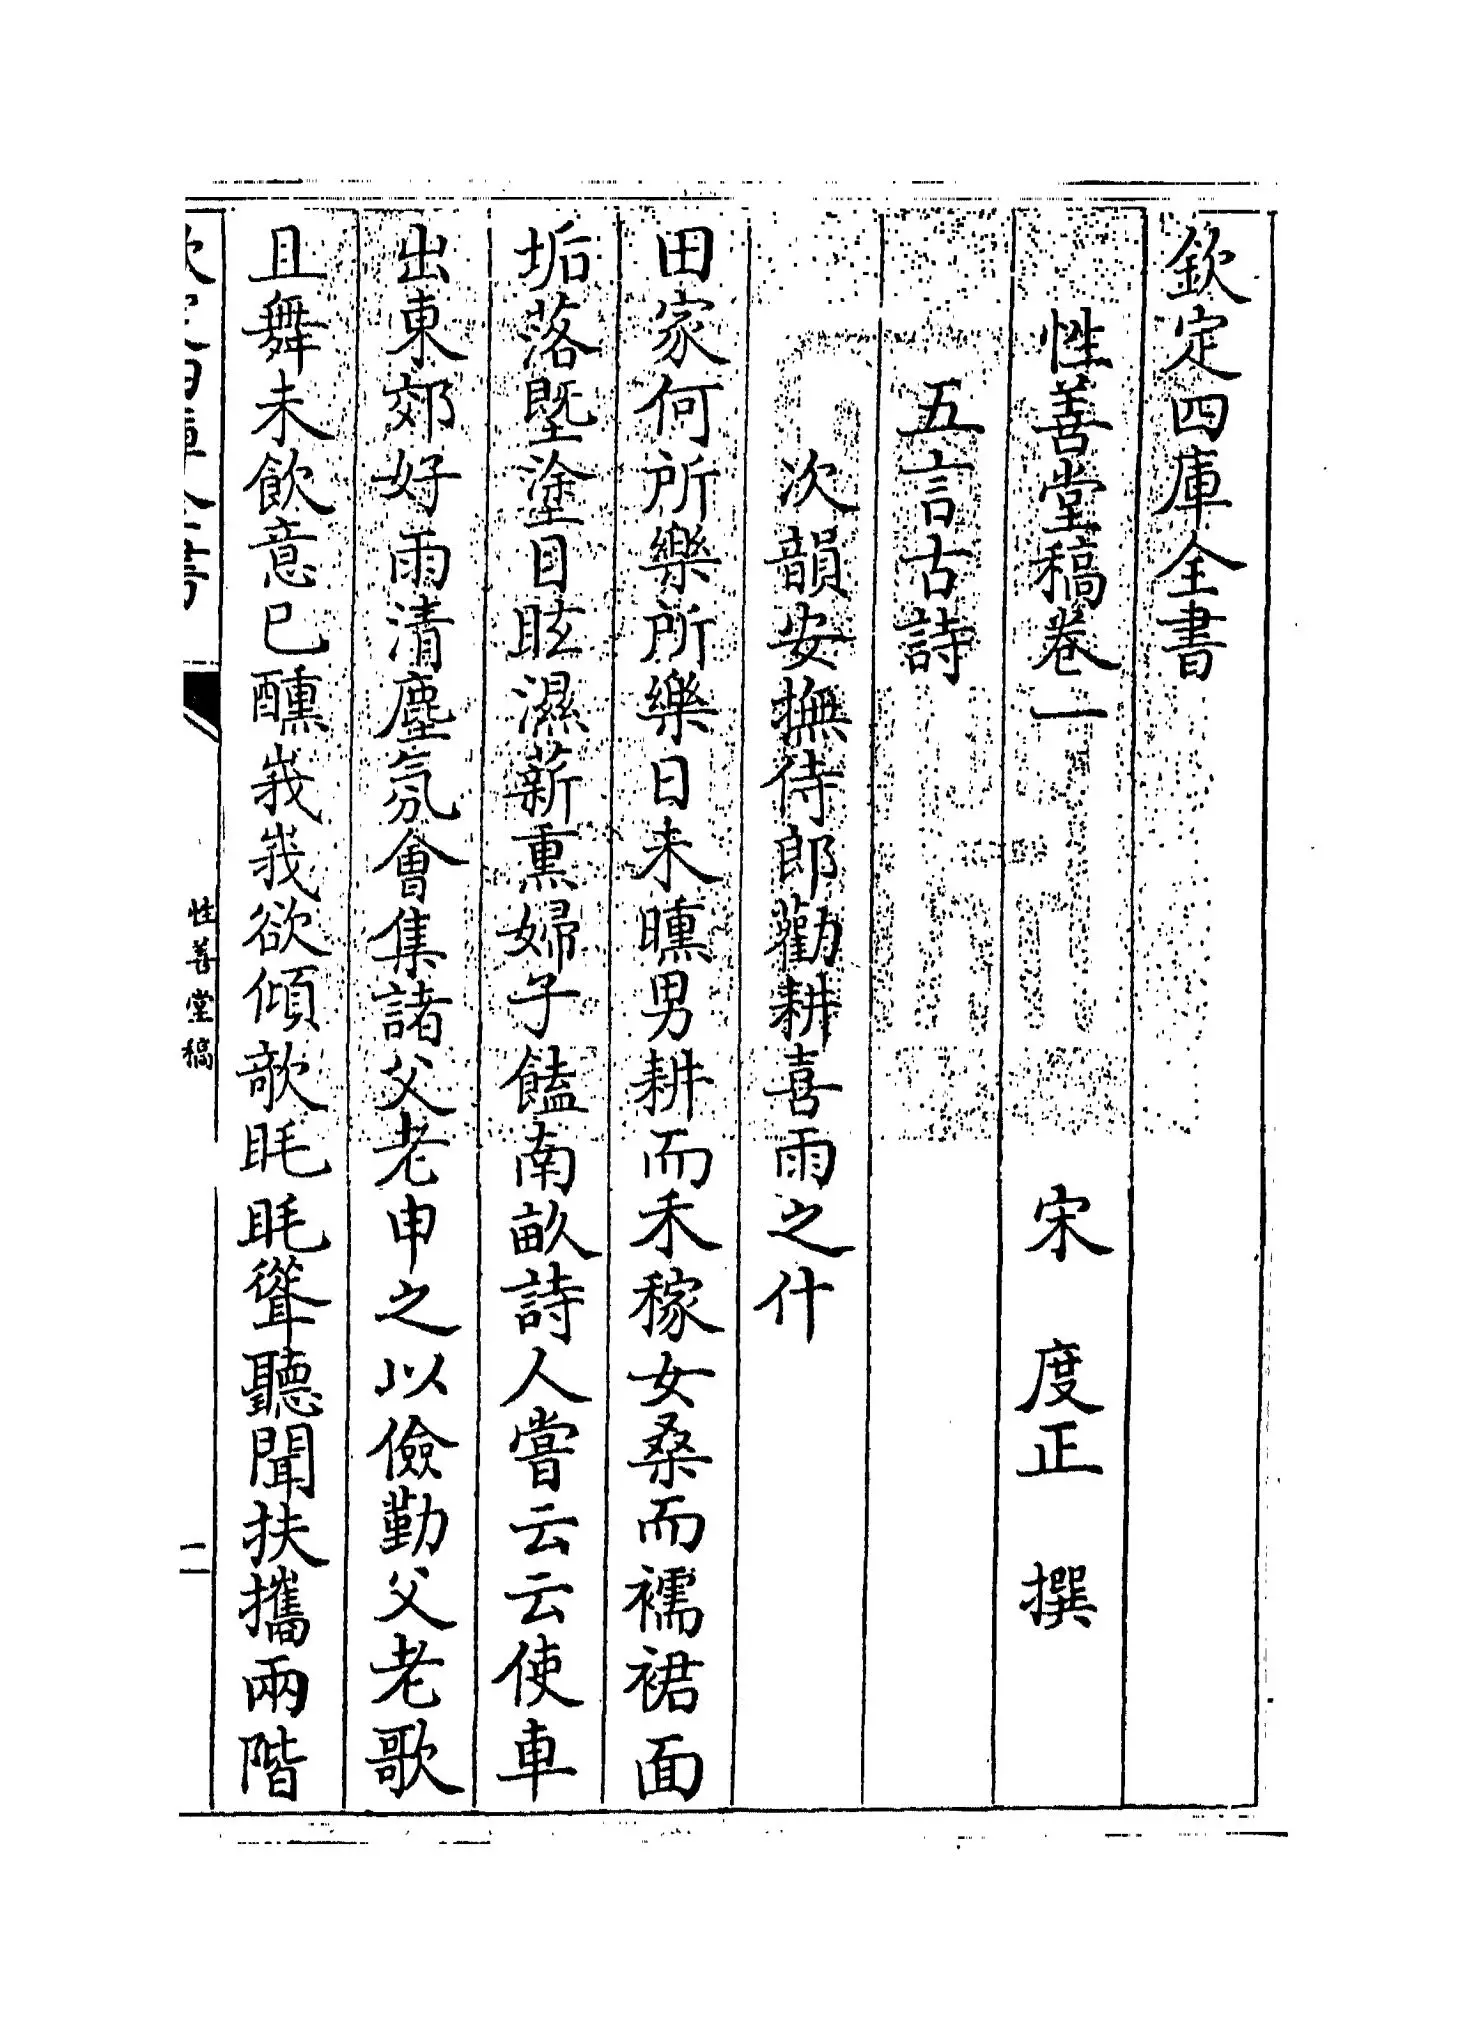 欽定四庫全書
性善堂稿卷一
宋 度正 撰
五言古詩
次韻安撫侍郎勸耕喜雨之什
田家何所樂所樂日未曛男耕而禾稼女桑而襦裙面
垢落塈塗目眩濕薪熏婦子饁南畝詩人嘗云云使車
出東郊好雨清塵氛會集諸父老申之以儉勤父老歌
且舞未飲意已醺峩峩欲傾欹眊眊聳聽聞扶攜兩階
性善堂稿